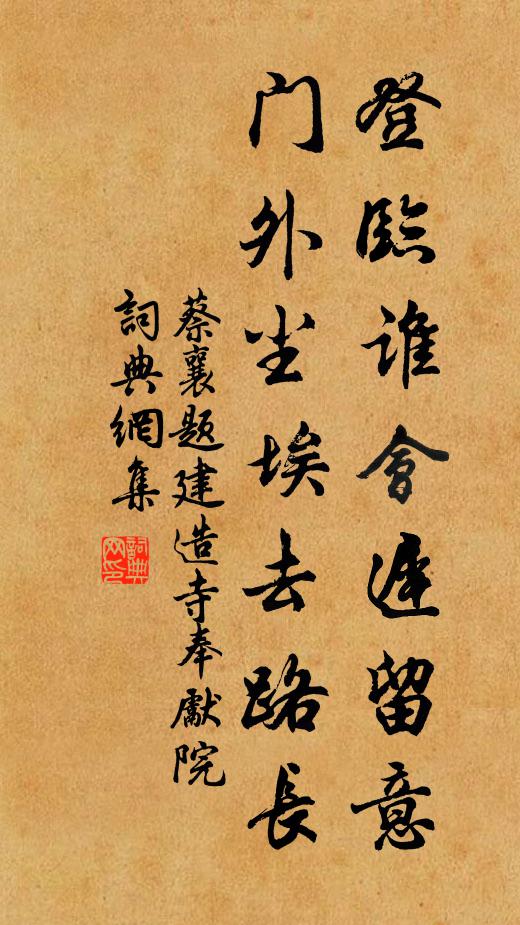 登臨谁會遲留意
门外尘埃去路長
蔡襄题建造寺奉獻院
詞典網集
詞典网印